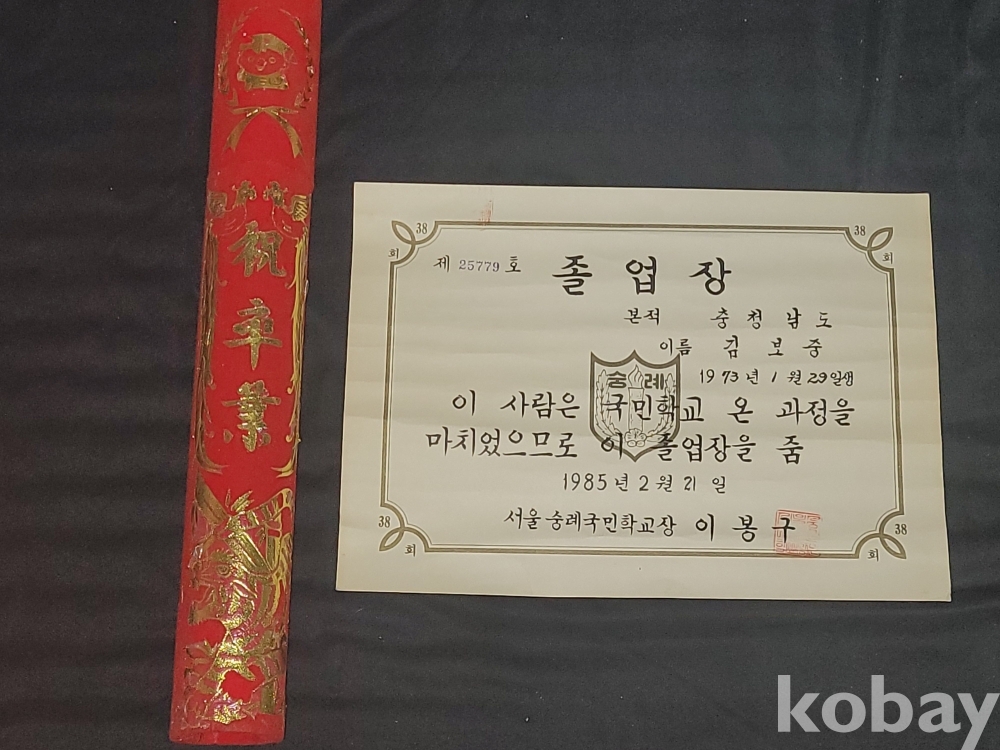 祝
卒
業
38
회
38
회
제 25779 호
졸 업 장
본적 충 청 남 도
이름 김 보 중
1973년 1월 29일생
숭례
이 사람은 국민학교 온 과정을
마치었으므로 이 졸업장을 줌
1985년 2월 21일
서울 숭례국민학교장 이 봉 구
38
회
38
회
kobay